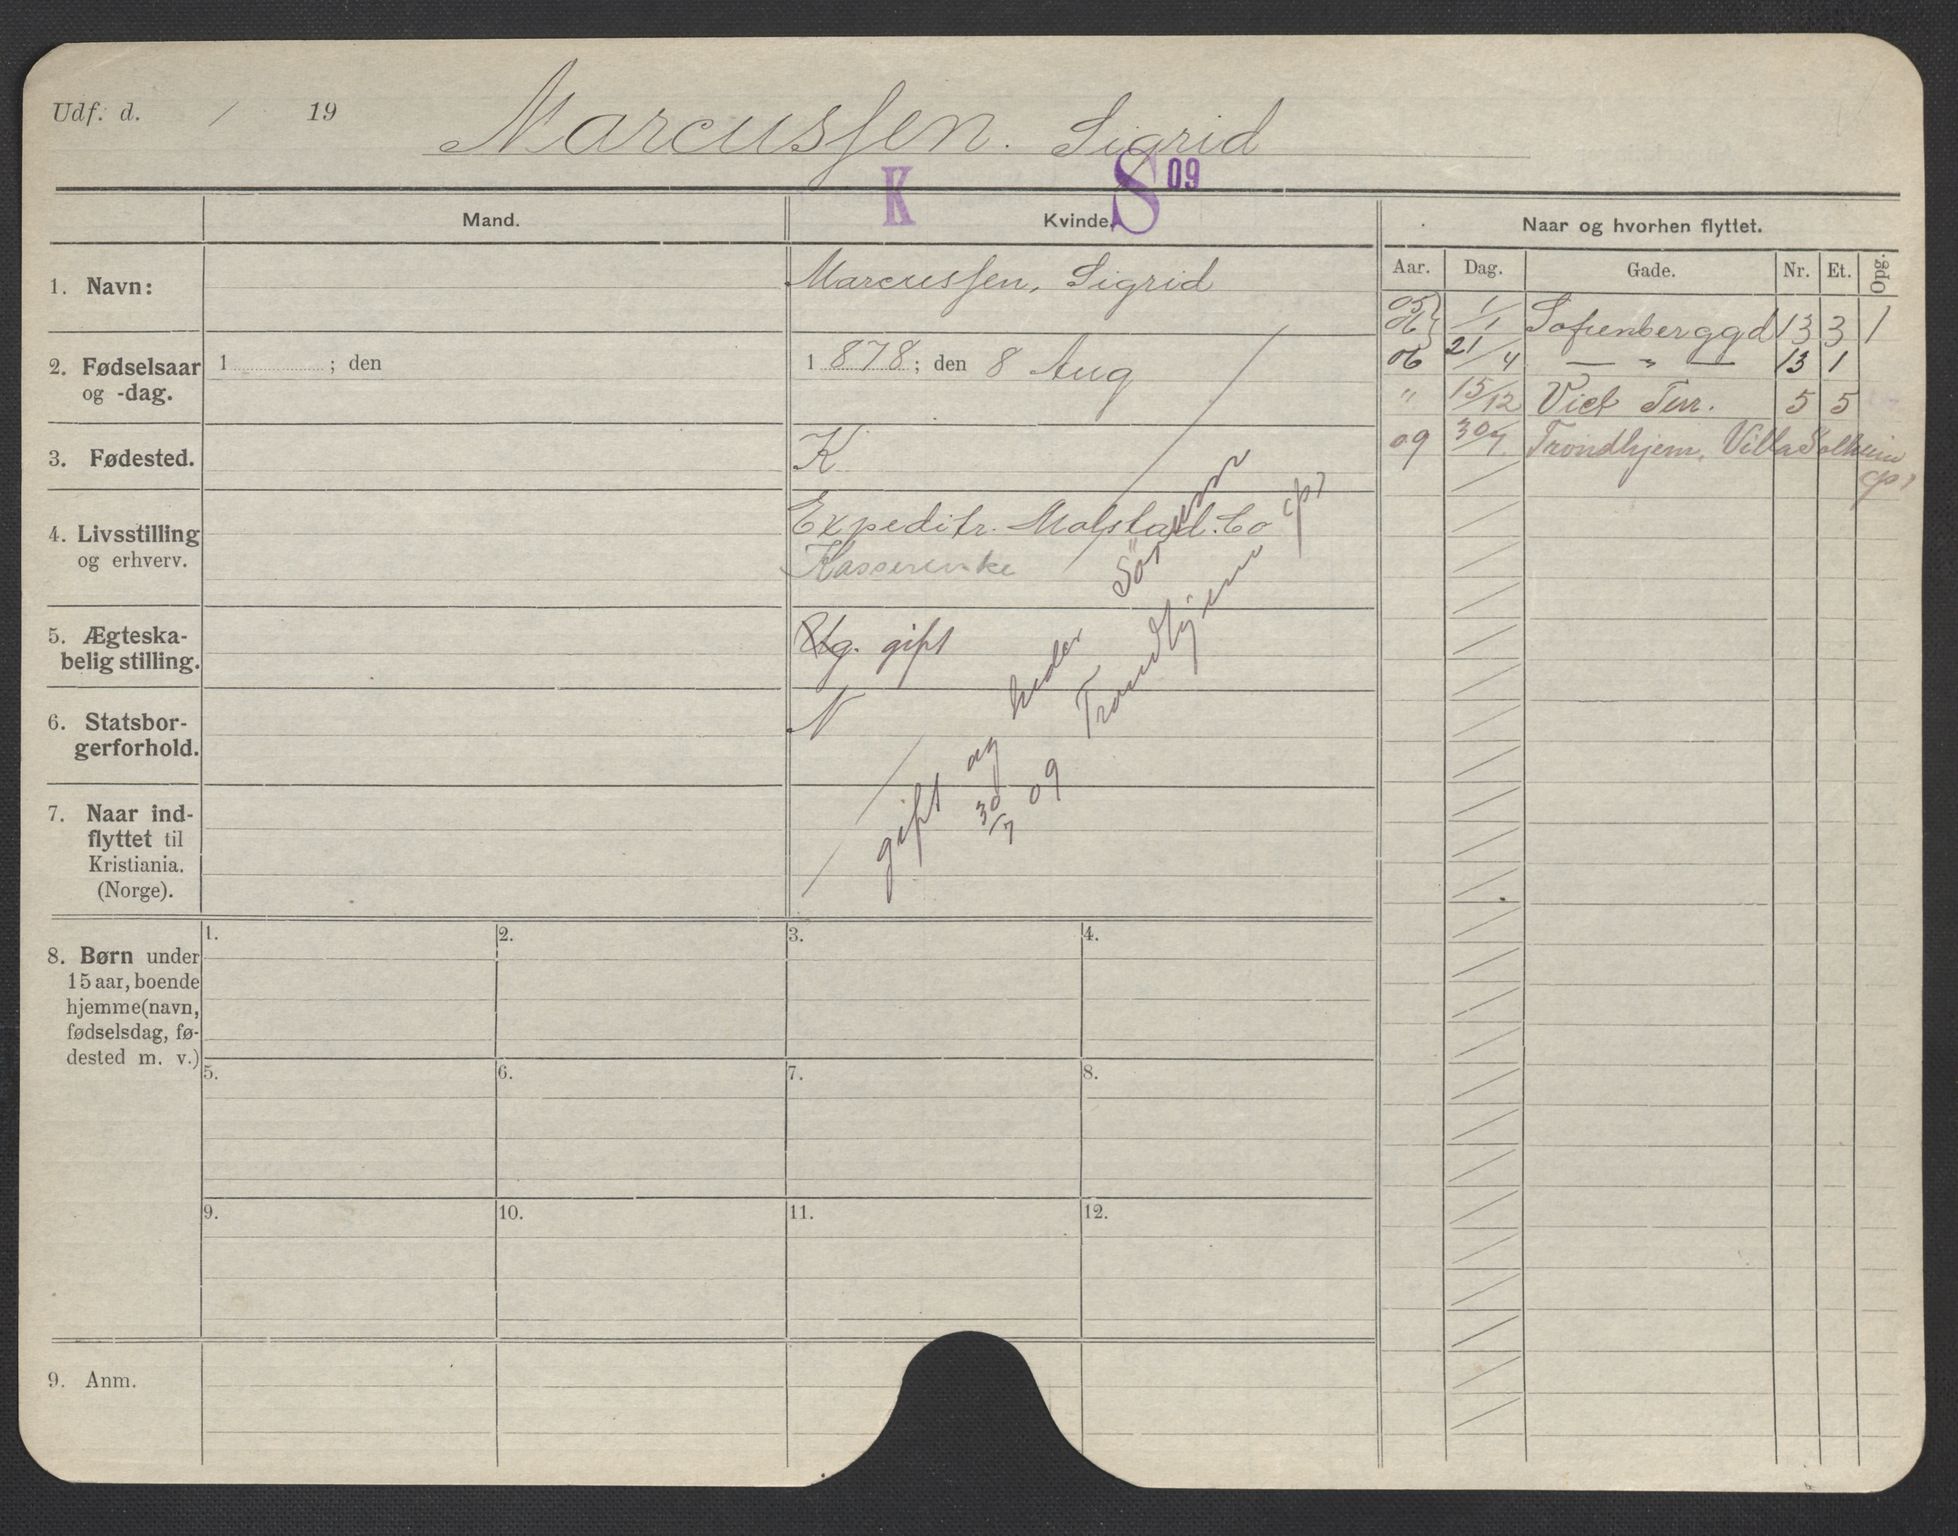 Udf. d. / 19
Marcussen. Sigrid
K S 09
Mand. Kvinde. Naar og hvorhen flyttet.
Aar. Dag. Gade. Nr. Et. Opg.
1. Navn: Marcussen, Sigrid
05 } 1/1 Sofienberggd 13 3 1
06 }
06 21/4 — " — 13 1
" 15/12 Vict Terr. 5 5
09 30/7 Trondhjem, Villa Solheim
2. Fødselsaar 1 ; den 1 878 ; den 8 Aug
og -dag.
3. Fødested. K
4. Livsstilling Expeditr. Molstad. Co
og erhverv.
5. Ægteska- Ug. gift
belig stilling.
6. Statsbor- N
gerforhold.
gift og heder
30/7 09 Trondhjem
7. Naar ind-
flyttet til
Kristiania.
(Norge).
8. Børn under
15 aar, boende
hjemme (navn,
fødselsdag, fø-
dested m. v.)
1. 2. 3. 4.
5. 6. 7. 8.
9. 10. 11. 12.
9. Anm.